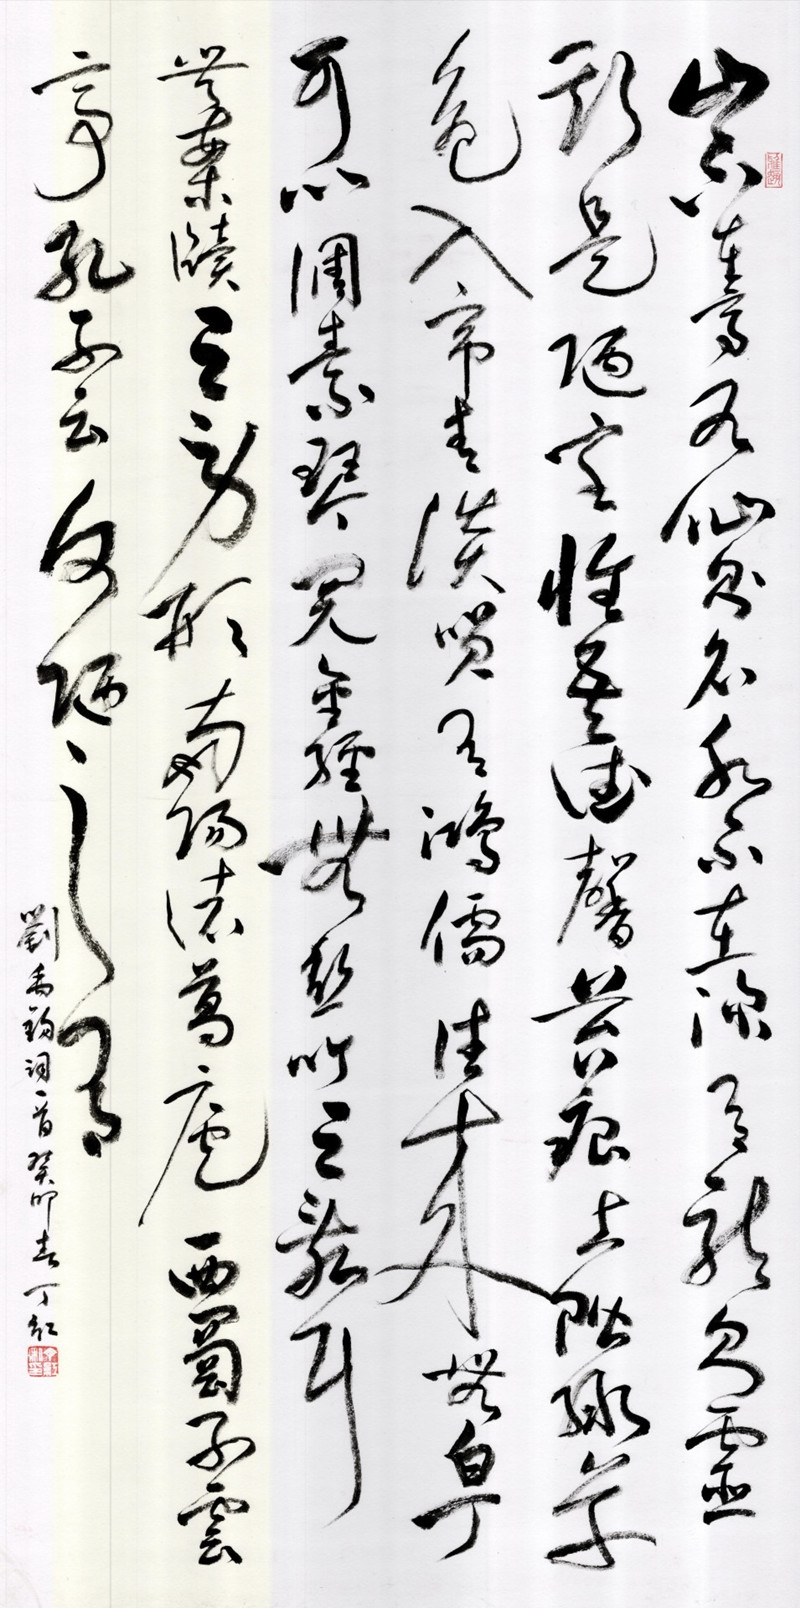 山不在高有仙則名水不在深有龍則靈
斯是陋室惟吾德馨苔痕上階綠草
色入帘青談笑有鴻儒往來無白丁
可以調素琴閱金經無絲竹之亂耳
無案牘之勞形南陽諸葛廬西蜀子雲
亭孔子云何陋之有
劉禹錫詞一首癸卯春丁